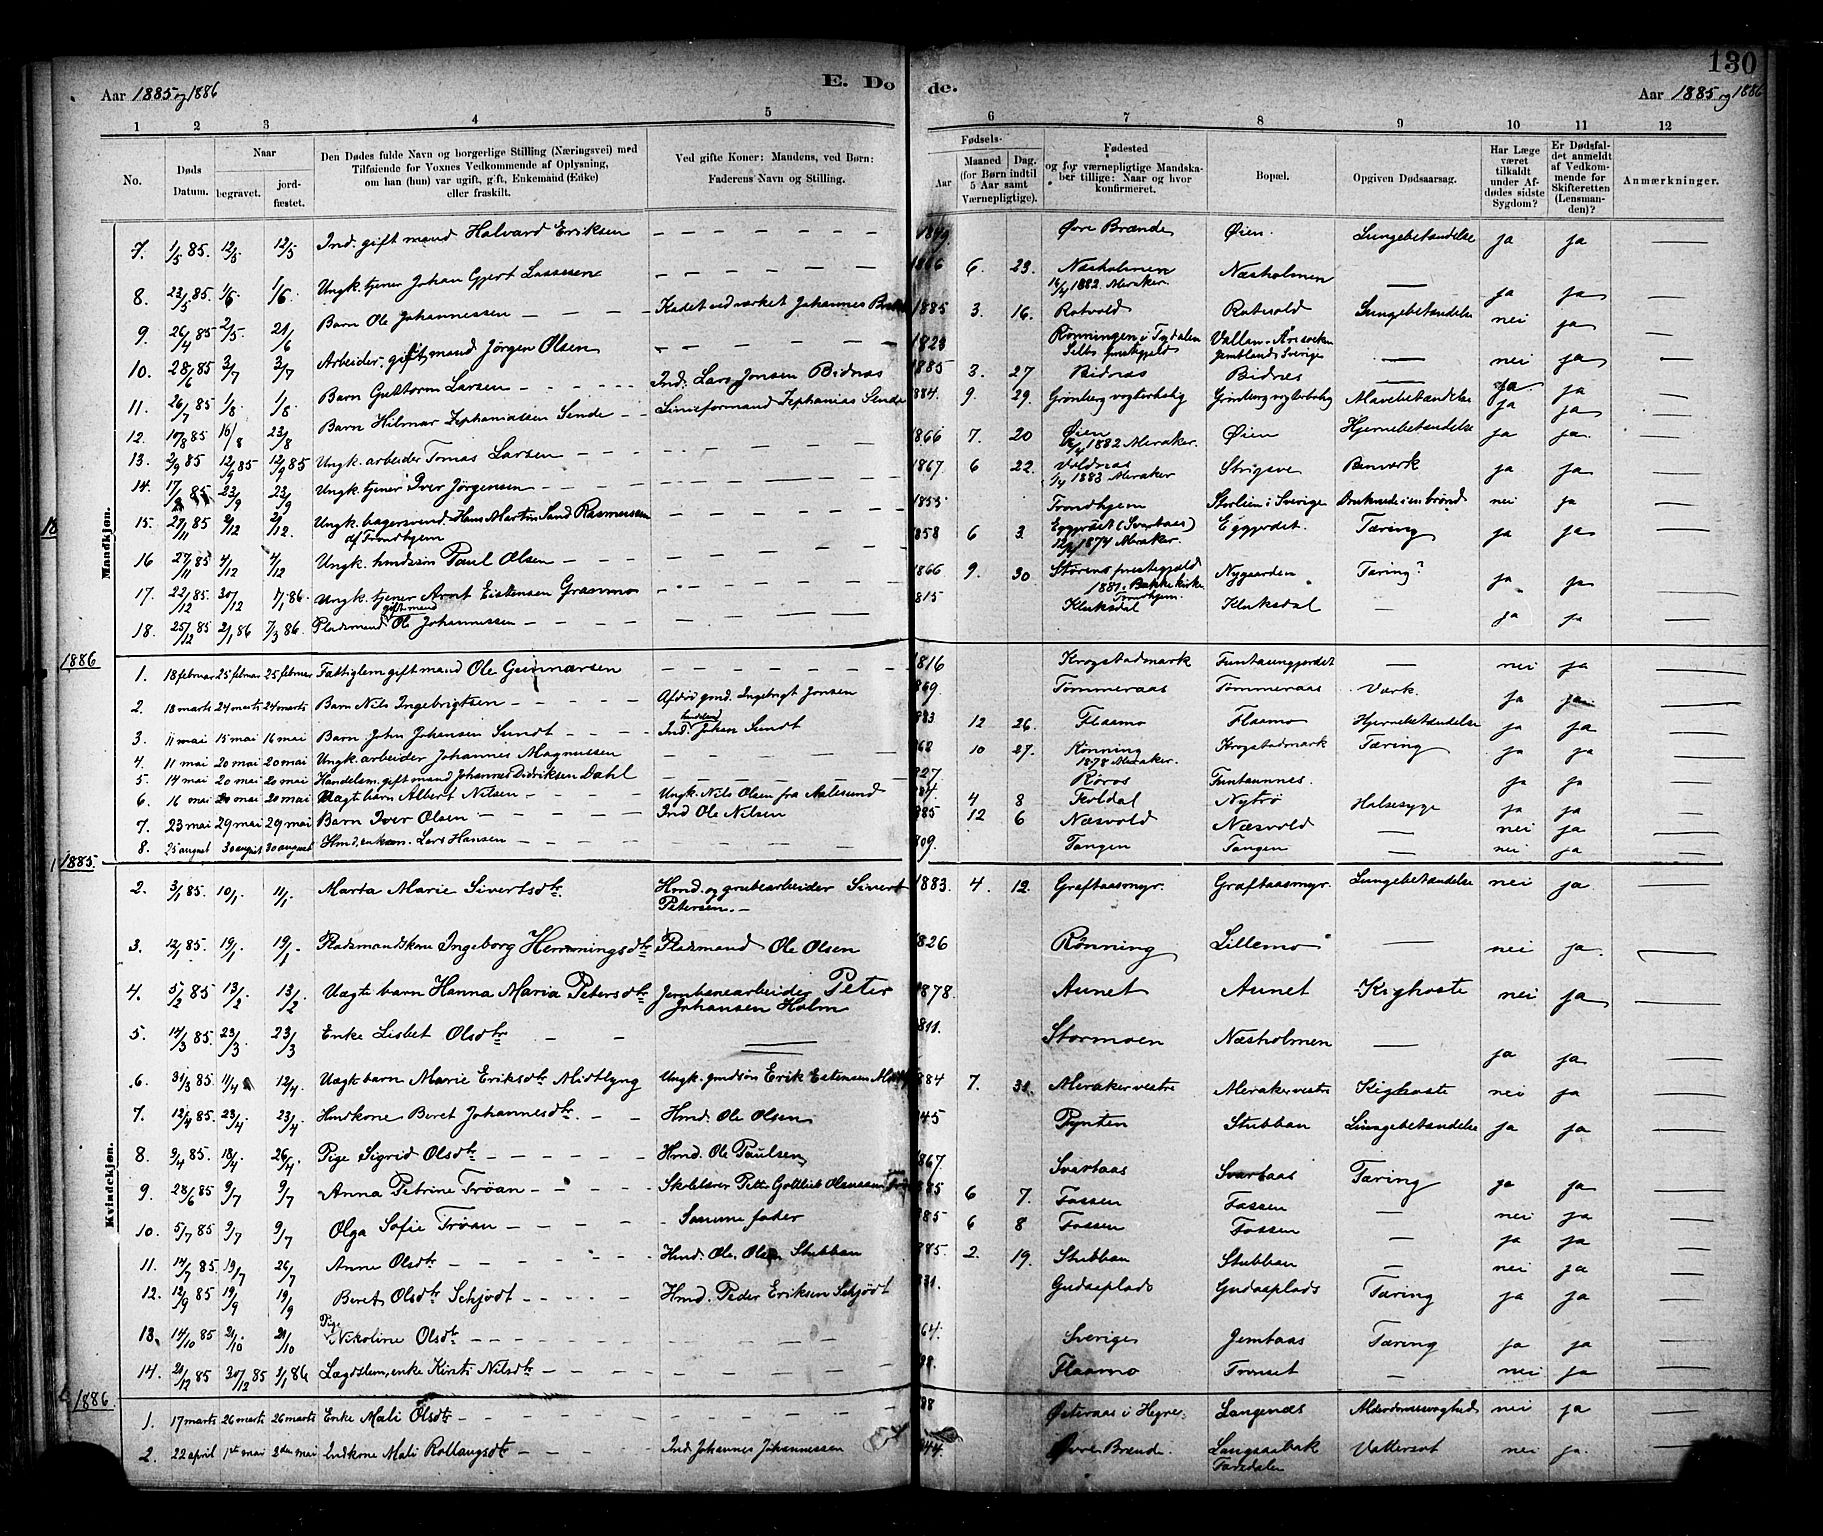 130
Aar 1885 og 1886
E. Dø
de.
Aar 1885 og 1886
1 2 3 4 5 6 7 8 9 10 11 12
No.
Døds Datum.
Naar
begravet.
jordfæstet.
Den Dødes fulde Navn og borgerlige Stilling (Næringsvei) med
Tilføiende for Voxnes Vedkommende af Oplysning,
om han (hun) var ugift, gift, Enkemand (Enke)
eller fraskilt.
Ved gifte Koner: Mandens, ved Børn:
Faderens Navn og Stilling.
Fødsels-
Aar
Maaned
(for Børn indtil
5 Aar samt
Værnepligtige).
Dag.
Fødested
og for værnepligtige Mandskaber tillige: Naar og hvor
konfirmeret.
Bopæl.
Opgiven Dødsaarsag.
Har Læge
været
tilkaldt
under Afdødes sidste
Sygdom?
Er Dødsfaldet anmeldt
af Vedkommende for
Skifteretten
(Lensmanden)?
Anmærkninger.
Mandkjøn.
7. 1/5 85. 12/5 12/5 Ind. gift mand Halvard Eriksen 1849 Øvre Brænde Øien. Lungebetændelse ja ja
8. 23/5 85. 1/6 1/6 Ungk. tjener Johan Gjert Lassesen 1866 6. 23. Næsholmen 1882 Meraker. Næsholmen ja ja
9. 26/4 85 2/5 21/6 Barn Ole Johannessen Johannes 1885 3. 16. Rotvold Rotvold Lungebetændelse nei ja
10. 28/6 85 3/7 3/7 Arbeider gift mand Jörgen Olsen 1823 Rönningen i Tydalen Selbo prestegjeld Jemtland Sverige nei ja
11. 26/7 85 1/8 1/8 Barn Guttorm Larsen Ind. Lars Jonsen Bidnas 1885 3. 27 Bidnæs Bidnæs ja ja
12. 17/8 85 16/8 23/8 Barn Hilmar Zephaniassen Sende Linieformand Zephanias Sende 1884. 9. 29. Grönberg vogterbolig Grönberg vogterbolig Mavebetændelse ja ja
13. 2/9 85 12/9 85 12/9 85 Ungk. arbeider Tomas Larsen 1866 7. 20 Øien 1882 Meraker. Øien Hjernebetændelse ja ja.
14. 17/ 85 23/9 23/9 Ungk. tjener Iver Jörgensen 1867. 6 22. 1883 Meraker Benværk ja ja
15. 27/11 85 2/12 2/12 Ungk. bagersvend Hans Martin Sand Rasmussen af Trondhjem 1853 Trondhjem Storlien i Sverige Druknede i en brønd nei ja
16 27/11 85 4/12 4/12 Ungk. hmdssön Paul Olsen 1858 6 3. Eggjerdet (Svartaas) 1874 Meraker. Eggjerdet. Tæring ja ja
17. 22/12 85. 30/12 7/1 86. Ungk. tjener Arnt Estensen Græsmo 1866 9. 30 Størens prestegjæld 1881. Bakke kirke Trondhjem. Nygaarden Tæring? ja ja
18. 25/12 85 2/1 86 7/3 86. Pladsmand gift mand Ole Johannessen 1815 Kluksdal Kluksdal ja ja
1886
1. 18 februar 25 februar 25 februar Fattiglem gift mand Ole Gunnarsen 1816 Krogstadmark Funtaungjerdet nei ja
2. 18 marts 24 marts 24 marts Barn Nils Ingebrigtsen gmd. Ingebrigt Jonsen 1869. Tømmeraas Tømmeraas Værk. ja ja
3. 11 mai 15 mai 16 mai Barn John Johansen Sundt Ind. Johan Sundt 1883 12 26. Flaamo Flaamo Hjernebetændelse ja ja
4. 11 mai 20 mai 20 mai Ungk. arbeider Johannes Magnussen 10 27. Rönning 1878 Meraker. Krogstadmark Tæring ja ja
5. 14 mai 20 mai 20 mai Handelsm. gift mand Johannes Didriksen Dahl 1827. Røros Funtaunnes. ja ja
6. 16 mai 20 mai 20 mai Uægte barn Albert Nilsen Ungk. Nils Olsen fra Aalesund 4 8 Foldal Nytrø Halsesyge ja ja
7. 23 mai 29 mai 29 mai Barn Iver Olsen Ind Ole Nilsen 1885 12 6 Næsvold Næsvold nei ja
8. 25 august 30 august 30 august Hmd, enkem. Lars Hansen 1809. Tangen Tangen nei ja
1885.
Kvindekjøn.
2. 3/1 85. 10/1. 11/1. Marta Marie Sivertsdtr. Hmd. og grubearbeider Sivert Petersen. 1883. 4. 12. Graftaasmyr. Graftaasmyr. Lungebetændelse nei ja
3. 12/1 85. 19/1 19/1 Pladsmandskone Ingeborg Hemmingsdtr. Pladsmand Ole Olsen 1826 Rønning Lillemo nei ja.
4. 5/2 85 13/2 13/2 Uægte barn Hanna Maria Petersdtr. Jernbanearbeider Peter Johansen Holm 1878. Aunet Aunet Kighoste nei ja
5. 14/3 85 23/3 23/3 Enke Lisbet Olsdtr 1811. Stormoen Næsholmen ja ja
6. 31/3 85. 11/4 12/4 Uægte barn Marie Eriksdtr Midtlyng Ungk. gmdsön Erik Estensen 1884 7. 31. Meraker vestre Meraker vestre Kighoste nei ja
7. 12/4 85. 23/4 23/4 Hmdkone Beret Johannesdtr. Hmd. Ole Olsen 1845 Pynten Stubban Lungebetændelse ja ja
8. 9/4 85. 18/4 26/4 Pige Sigrid Olsdtr Hmd. Ole Paulsen 1867. Svartaas Svartaas Tæring ja ja
9. 28/6 85 9/7 9/7 Anna Petrine Trøan Skolelærer Petter Gottlieb 1885 6 7. Fossen Fossen nei ja
10. 5/7 85 9/7 9/7 Olga Sofie Trøan Samme fader 1885 6 8 Fossen Fossen ja ja
11. 14/7 85 19/7 26/7 Anne Olsdtr Hmd. Ole Olsen Stubban 1885. 2. 19. Stubban Stubban nei ja
12. 12/9 85 19/9 19/9 Beret Olsdtr Schjödt Hmd. Peder Eriksen Schjødt 1831. Gudaaplads Gudaaplads Tæring ja ja
13. 14/10 85 21/10 21/10 Pige Nikoline Olsdtr 1864. Sverige Jemtaas Tæring ja ja
14. 21/12 85 30/12 85 3/1 86 Lægdslem, enke Kirsti Nilsdtr Flaamo nei ja
1886.
1. 17 marts 26 marts 26 marts Enke Mali Olsdtr Østeraas i Hegre. Langenæs Alderdomssvaghed nei ja
2. 22 april 1ste mai 2den mai Indkone Mali Rollaugsdtr Ind. Johannes Johannessen 1844. Øvre Brænde. Vattersot nei ja.